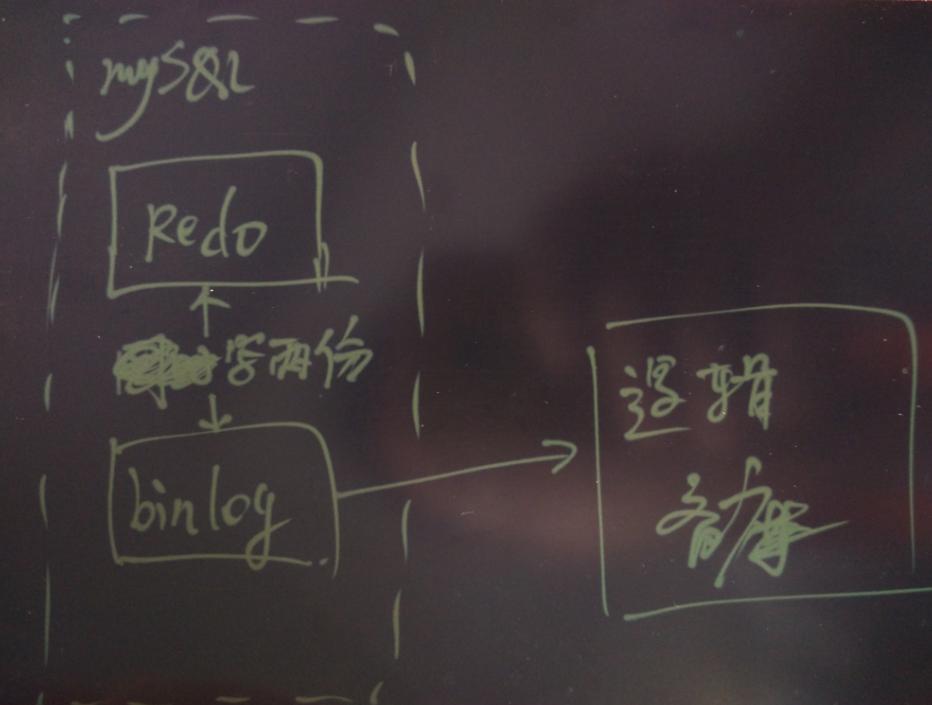 mySQL
Redo
写两份
binlog
逻辑
备库